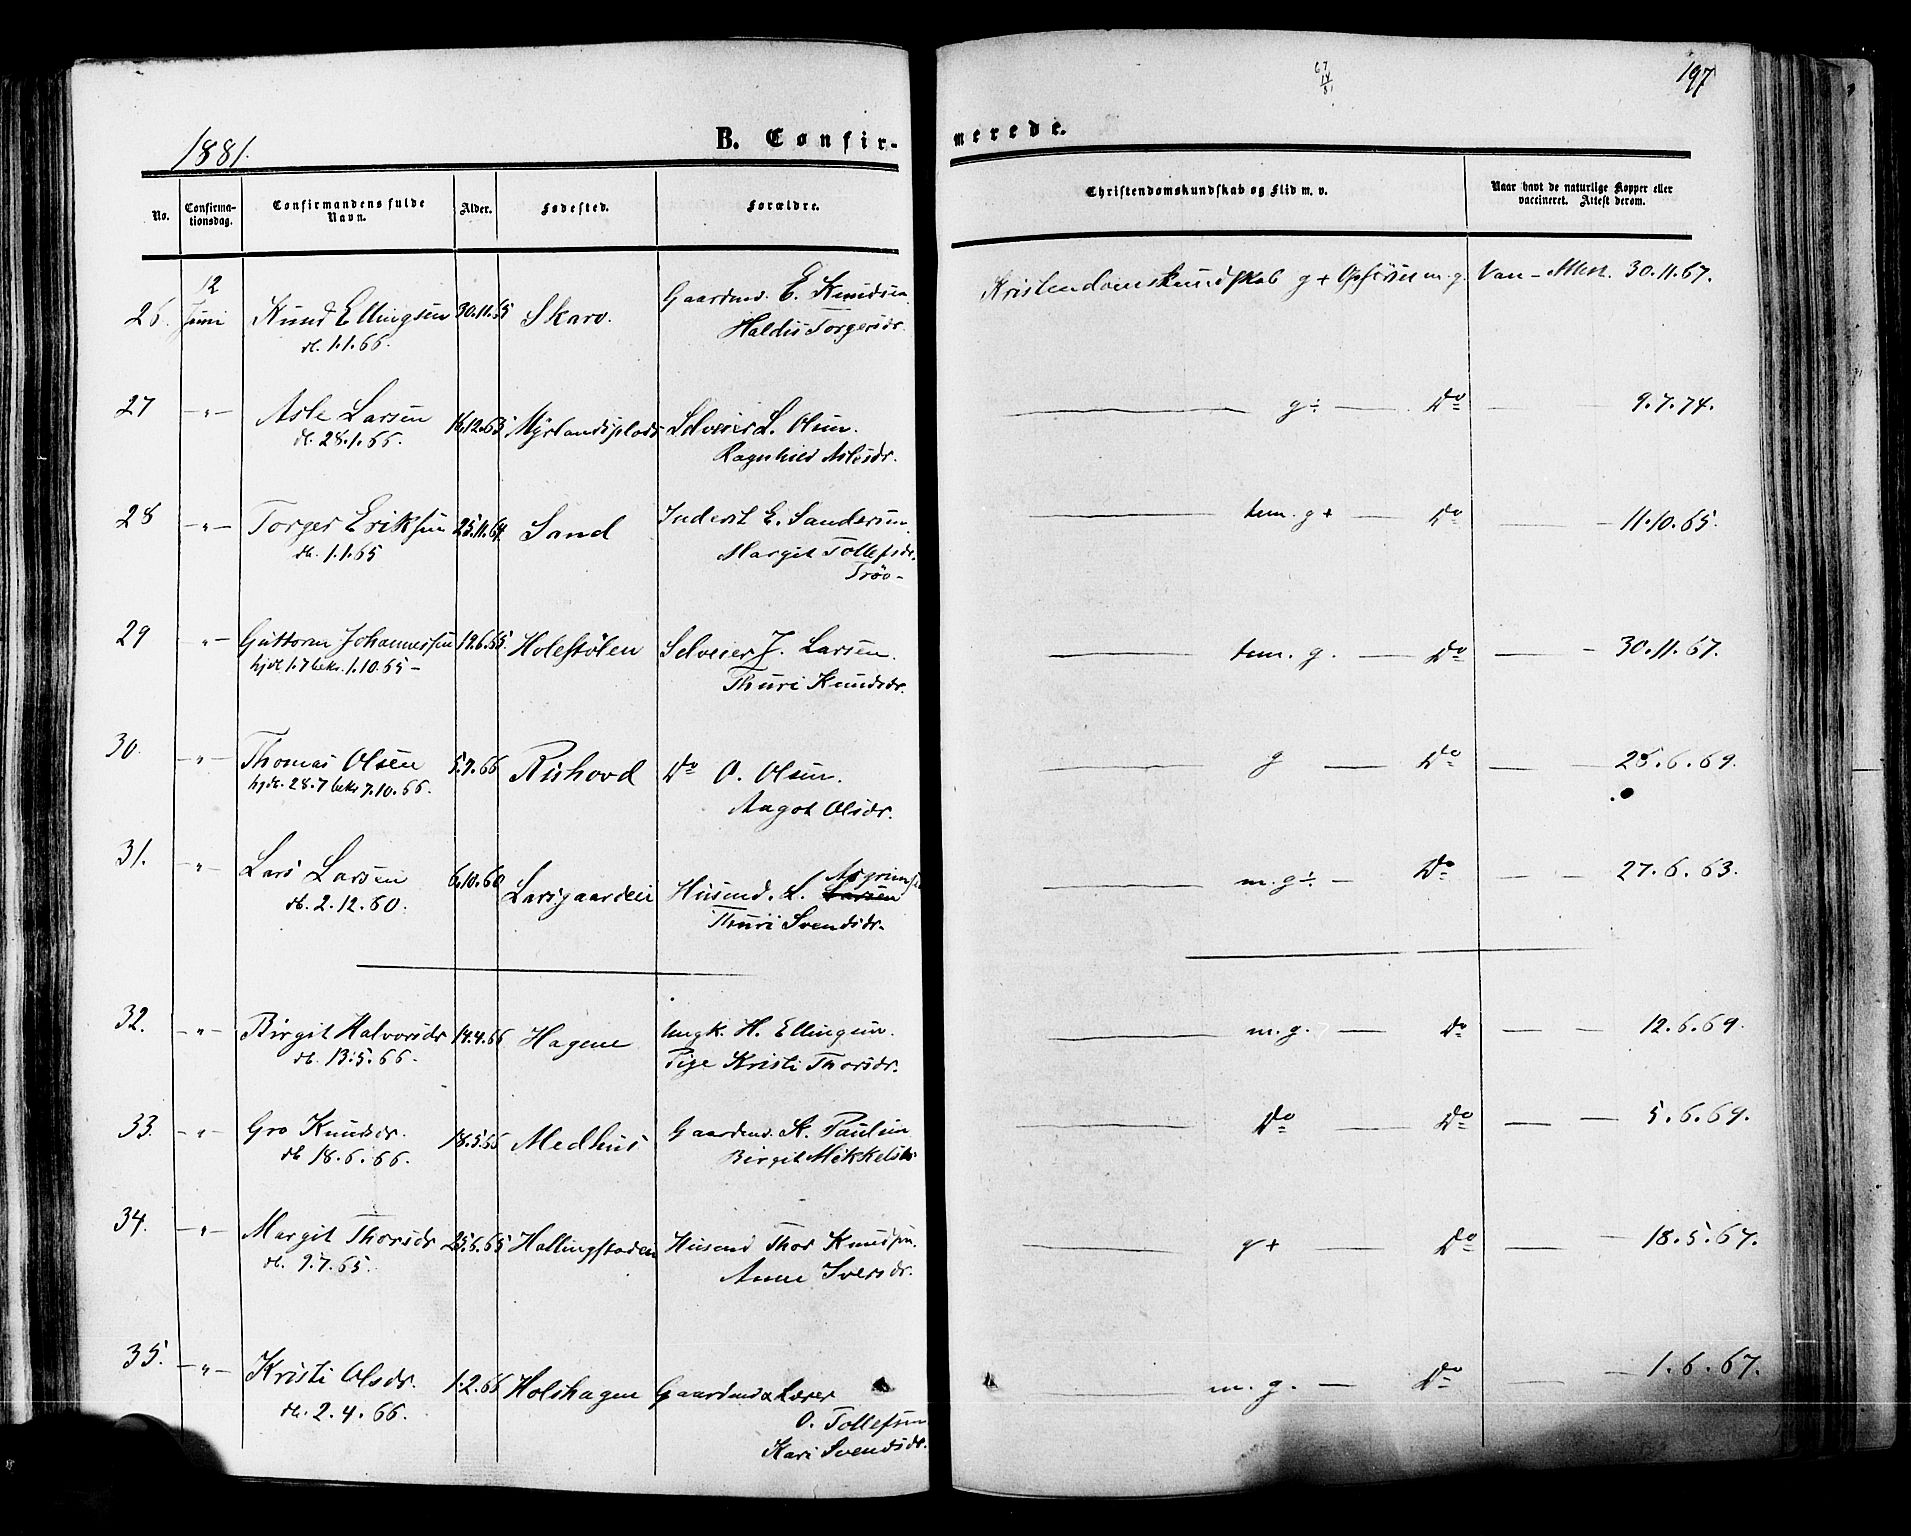 197
67
14
81
1881.
B. Confirmerede.
No.
Confirmationsdag.
Confirmandens fulde Navn.
Alder.
Fødested.
Forældre.
Christendomskundskab og Flid m. v.
Naar havt de naturlige Kopper eller vaccineret. Attest derom.
26. 12 Juni Knud Ellingsen 30.11.65 Skaro. Gaardmd. E. Knudsen Kristendomskundskab g+ Opførsel m.g. Van - Atten. 30.11.67.
db. 1.1.66. Haldis Torgersdr.
27 -"- Asle Larsen 16.12.65 Myrlandsplads Selveier L. Olsen. g÷ Do 9.7.74.
db. 28.1.66. Ragnhild Aslesdr.
28 -"- Torger Eriksen 25.11.64 Sand Inderst E. Sandersen tem. g+ Do 11.10.65.
db. 1.1.65 Margit Tollefsdr.
Trøo-
29 -"- Guttorm Johannessen 19.6.65. Holestølen Selveier J. Larsen. tem. g. Do 30.11.67.
hjdb. 1.7 bekr. 1.10.65- Thuri Knudsdr.
30. -"- Thomas Olsen 5.7.66 Rishovd Do O. Olsen. g Do 28.6.69.
hjdb. 28.7 bekr 7.10.66. Aagot Olsdr.
31. -"- Lars Larsen 6.10.60 Larsgaardeie Husmd. L. Larsen Asgrimsen m.g÷ Do 27.6.63.
db. 2.12.60. Thuri Svendsdr.
32. -"- Birgit Halvorsdr 14.4.66 Hagene Ungk. H. Ellingsen. m.g. Do 12.6.69.
db. 13.5.66. Pige Kristi Thorsdr.
33. -"- Gro Knudsdr. 18.5.66 Medhus Gaardmd. K. Paulsen Do Do 5.6.69.
db 18.6.66. Birgit Mikkelsdr
34. -"- Margit Thorsdr 25.6.65 Hallingstadeie Husmd Thor Knudsen. g+ Do 18.5.67.
db. 9.7.65. Anne Iversdr.
35. -"- Kristi Olsdr. 1.2.66 Holshagen Gaardmd & Lærer m.g. Do 1.6.67.
db. 2.4.66. O. Tollefsen
Kari Svendsdr.